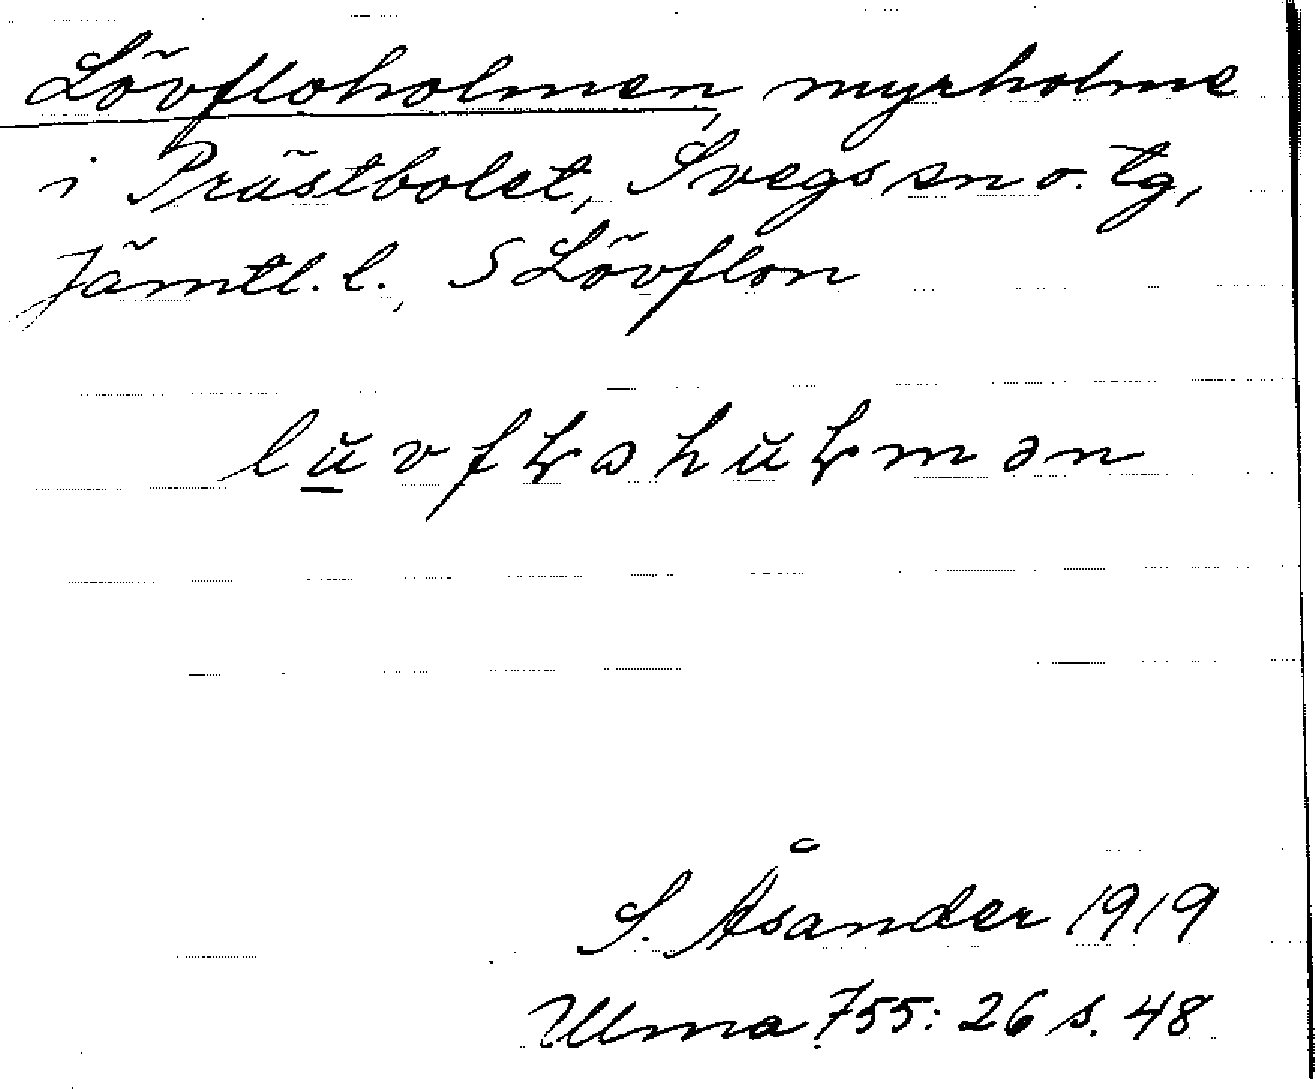 Lövfloholmen, myrholme
i Prästbolet, Svegs sn o. tg,
Jämtl. l., S Lövflon
lŭ̲vfꞎɷhŭꞎmən
S. Åsander 1919
Ulma 755: 26 s. 48